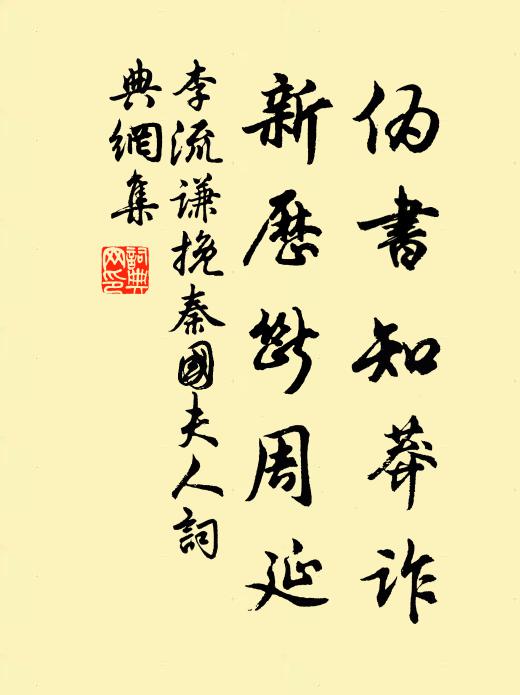 伪書知莽诈
新歷斷周延
李流谦挽秦國夫人詞
典網集
詞典網印